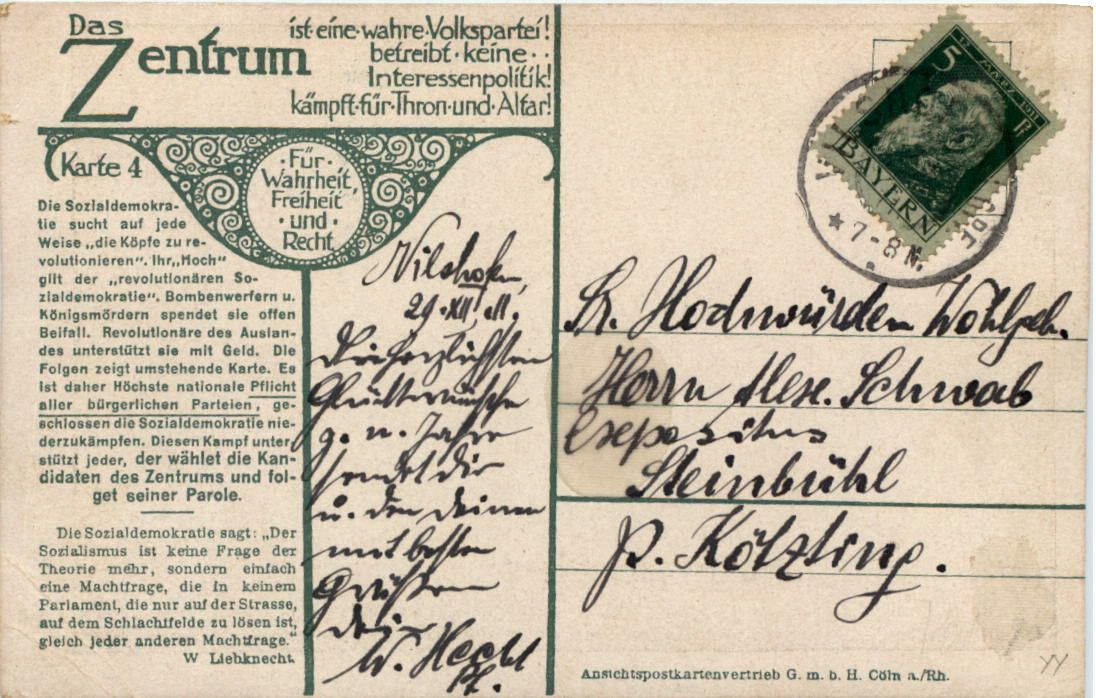 Das
Zentrum
ist·eine·wahre·Volkspartei!
betreibt·keine··
Interessenpolitik!
kämpft·für·Thron·und·Altar!
Karte 4
·Für·
Wahrheit,
Freiheit
·und·
Recht
Die Sozialdemokra-
tie sucht auf jede
Weise „die Köpfe zu re-
volutionieren“. Ihr „Hoch“
gilt der „revolutionären So-
zialdemokratie“. Bombenwerfern u.
Königsmördern spendet sie offen
Beifall. Revolutionäre des Auslan-
des unterstützt sie mit Geld. Die
Folgen zeigt umstehende Karte. Es
ist daher Höchste nationale Pflicht
aller bürgerlichen Parteien, ge-
schlossen die Sozialdemokratie nie-
derzukämpfen. Diesen Kampf unter-
stützt jeder, der wählet die Kan-
didaten des Zentrums und fol-
get seiner Parole.
Die Sozialdemokratie sagt: „Der
Sozialismus ist keine Frage der
Theorie mehr, sondern einfach
eine Machtfrage, die in keinem
Parlament, die nur auf der Strasse,
auf dem Schlachtfelde zu lösen ist,
gleich jeder anderen Machtfrage.“
W Liebknecht.
Vilshofen,
29.XII.11.
Die herzlichsten
Glückwünsche
z. n. Jahre
sendet dir
u. den deinen
mit besten
Grüßen
dein
W. Hecht
5 12. MÄRZ 1911 Pf.
BAYERN
* 7-8 N.
Sr. Hochwürden Wohlgeb.
Herrn Schwab
Expositus
Steinbühl
p. Kötzting.
Ansichtspostkartenvertrieb G. m. b. H. Cöln a./Rh.